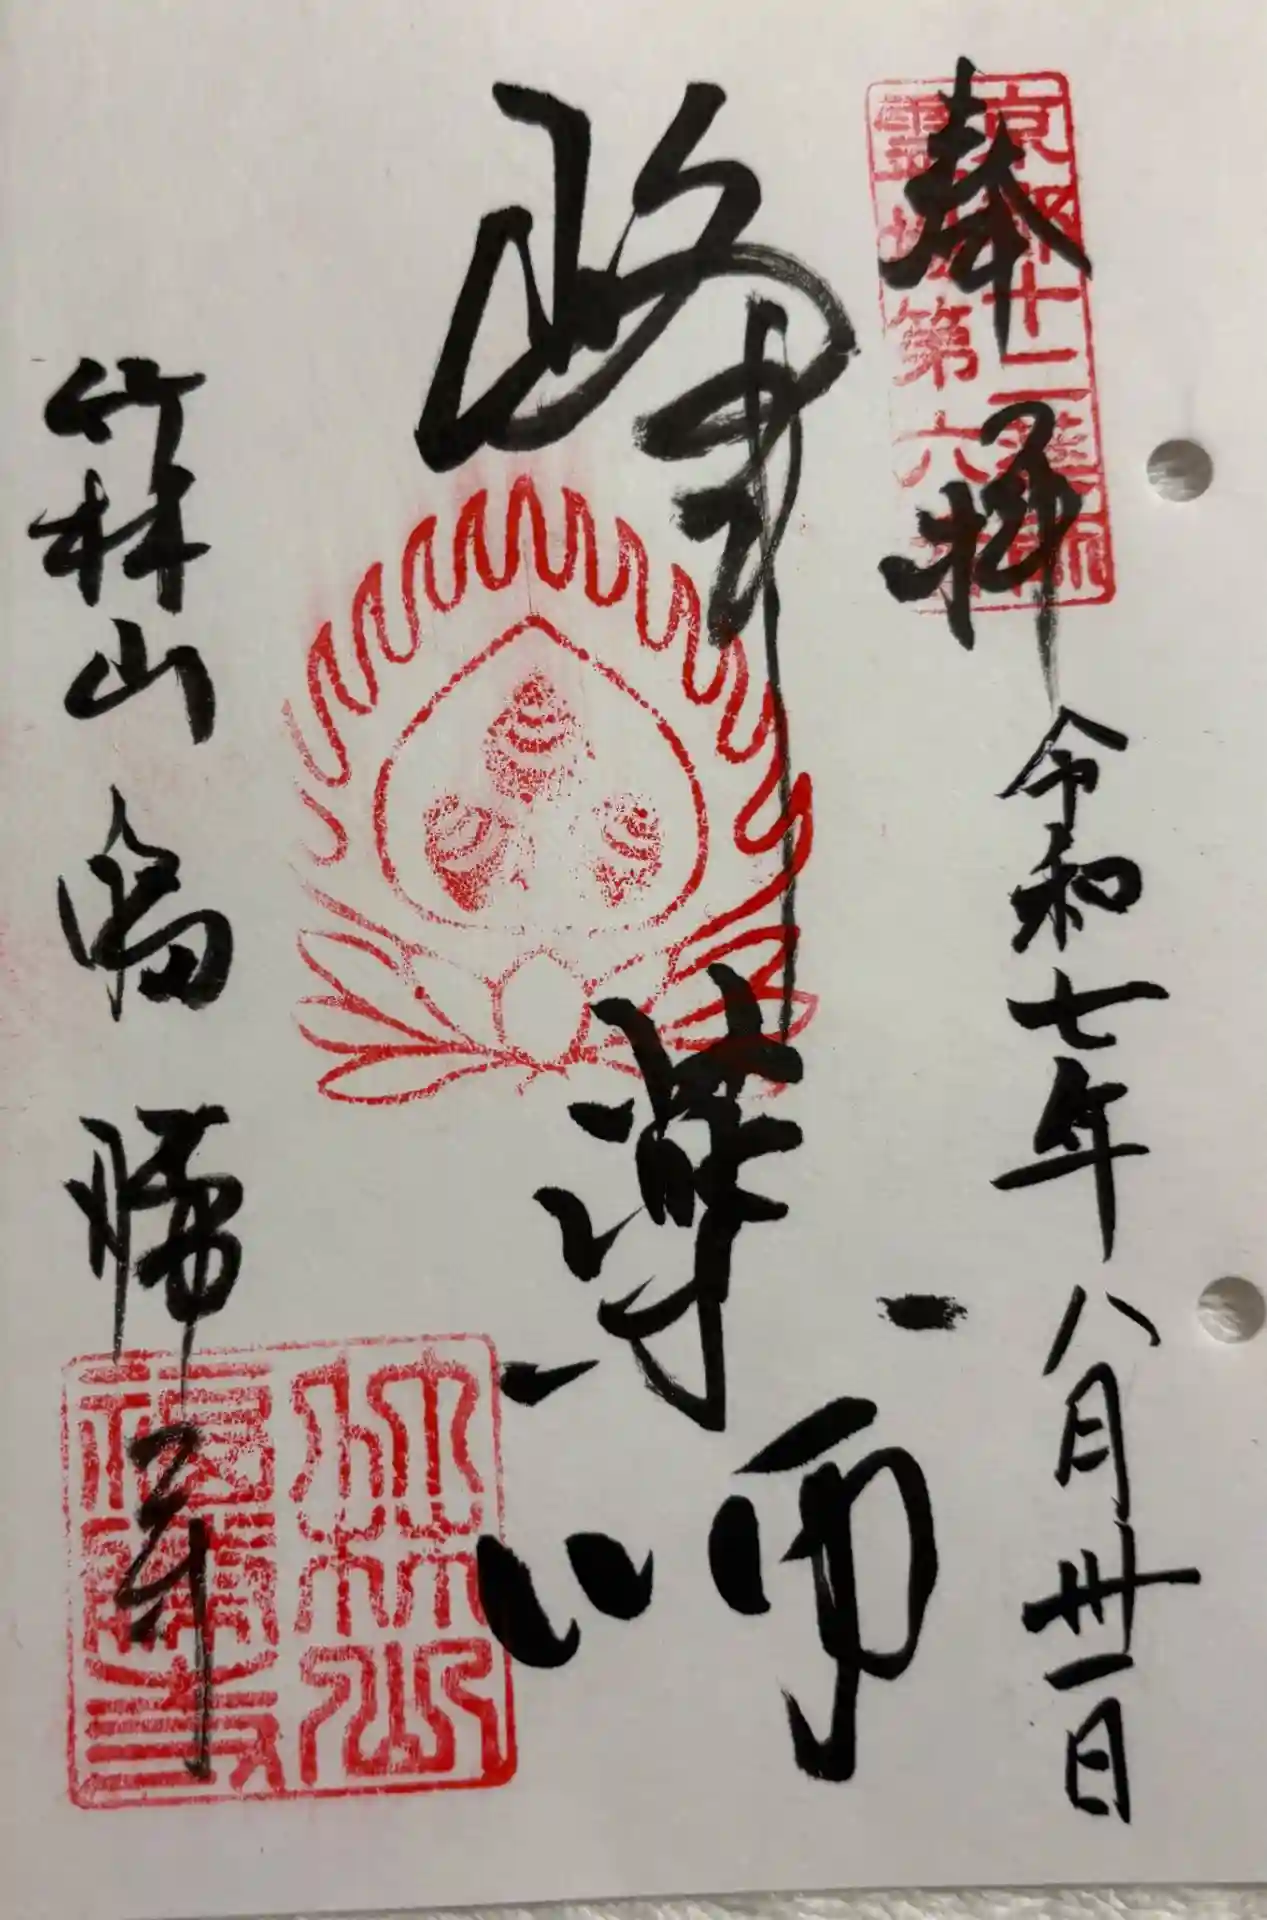 京都十二薬師
霊場第六番
奉拝
令和七年八月卅一日
峰薬師
竹林山福勝寺
竹林山
福勝寺